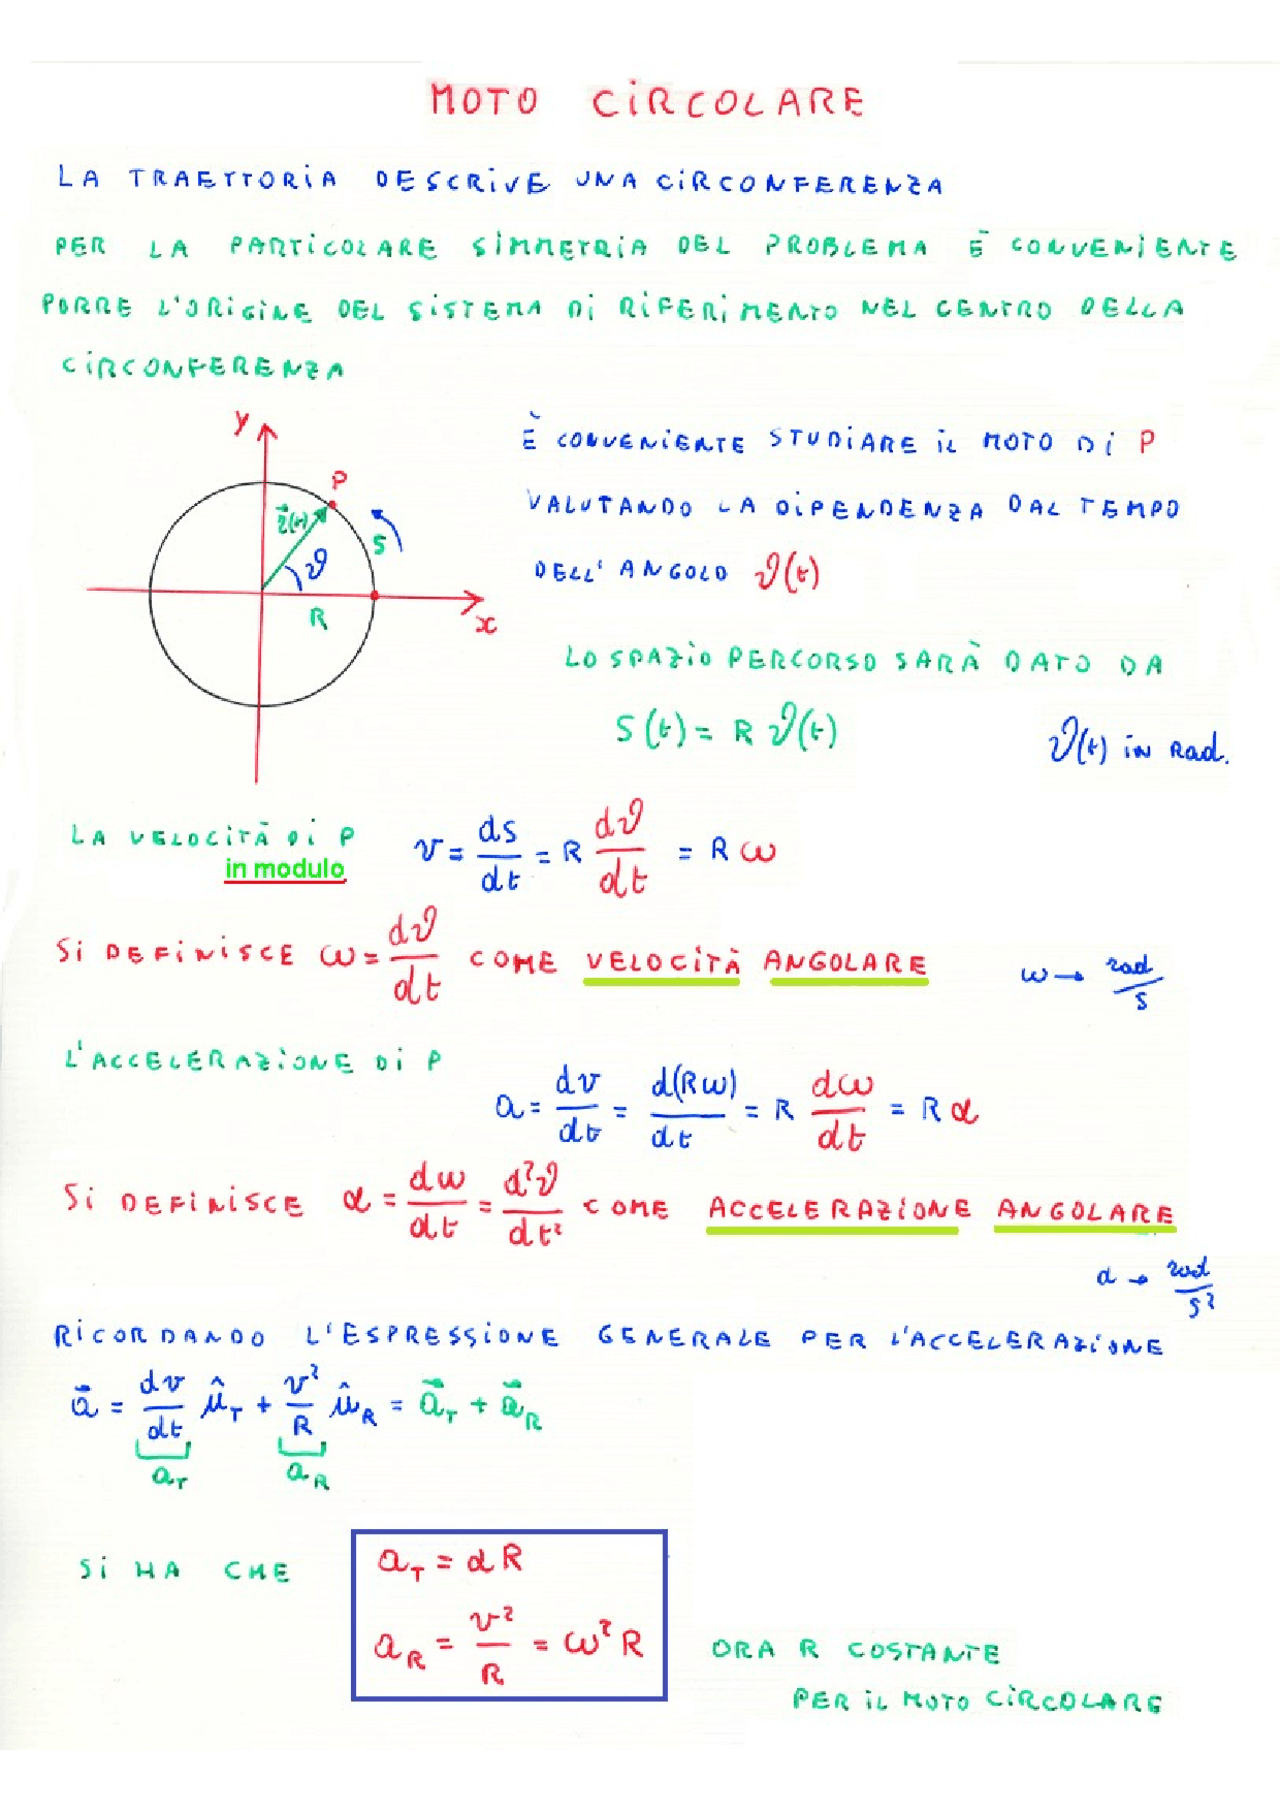 MOTO CIRCOLARE
LA TRAETTORIA DESCRIVE UNA CIRCONFERENZA
PER LA PARTICOLARE SIMMETRIA DEL PROBLEMA È CONVENIENTE
PORRE L'ORIGINE DEL SISTEMA DI RIFERIMENTO NEL CENTRO DELLA
CIRCONFERENZA
y
P
r⃗(t)
S
ϑ
R
x
È CONVENIENTE STUDIARE IL MOTO DI P
VALUTANDO LA DIPENDENZA DAL TEMPO
DELL'ANGOLO ϑ(t)
LO SPAZIO PERCORSO SARÀ DATO DA
S(t) = R ϑ(t)
ϑ(t) in Rad.
LA VELOCITÀ DI P v = ds/dt = R dϑ/dt = R ω
in modulo
SI DEFINISCE ω = dϑ/dt COME VELOCITÀ ANGOLARE ω → rad/s
L'ACCELERAZIONE DI P
a = dv/dt = d(Rω)/dt = R dω/dt = R α
SI DEFINISCE α = dω/dt = d²ϑ/dt² COME ACCELERAZIONE ANGOLARE
α → rad/s²
RICORDANDO L'ESPRESSIONE GENERALE PER L'ACCELERAZIONE
a⃗ = dv/dt û_T + v²/R û_R = a⃗_T + a⃗_R
a_T a_R
SI HA CHE
a_T = α R
a_R = v²/R = ω² R
ORA R COSTANTE
PER IL MOTO CIRCOLARE